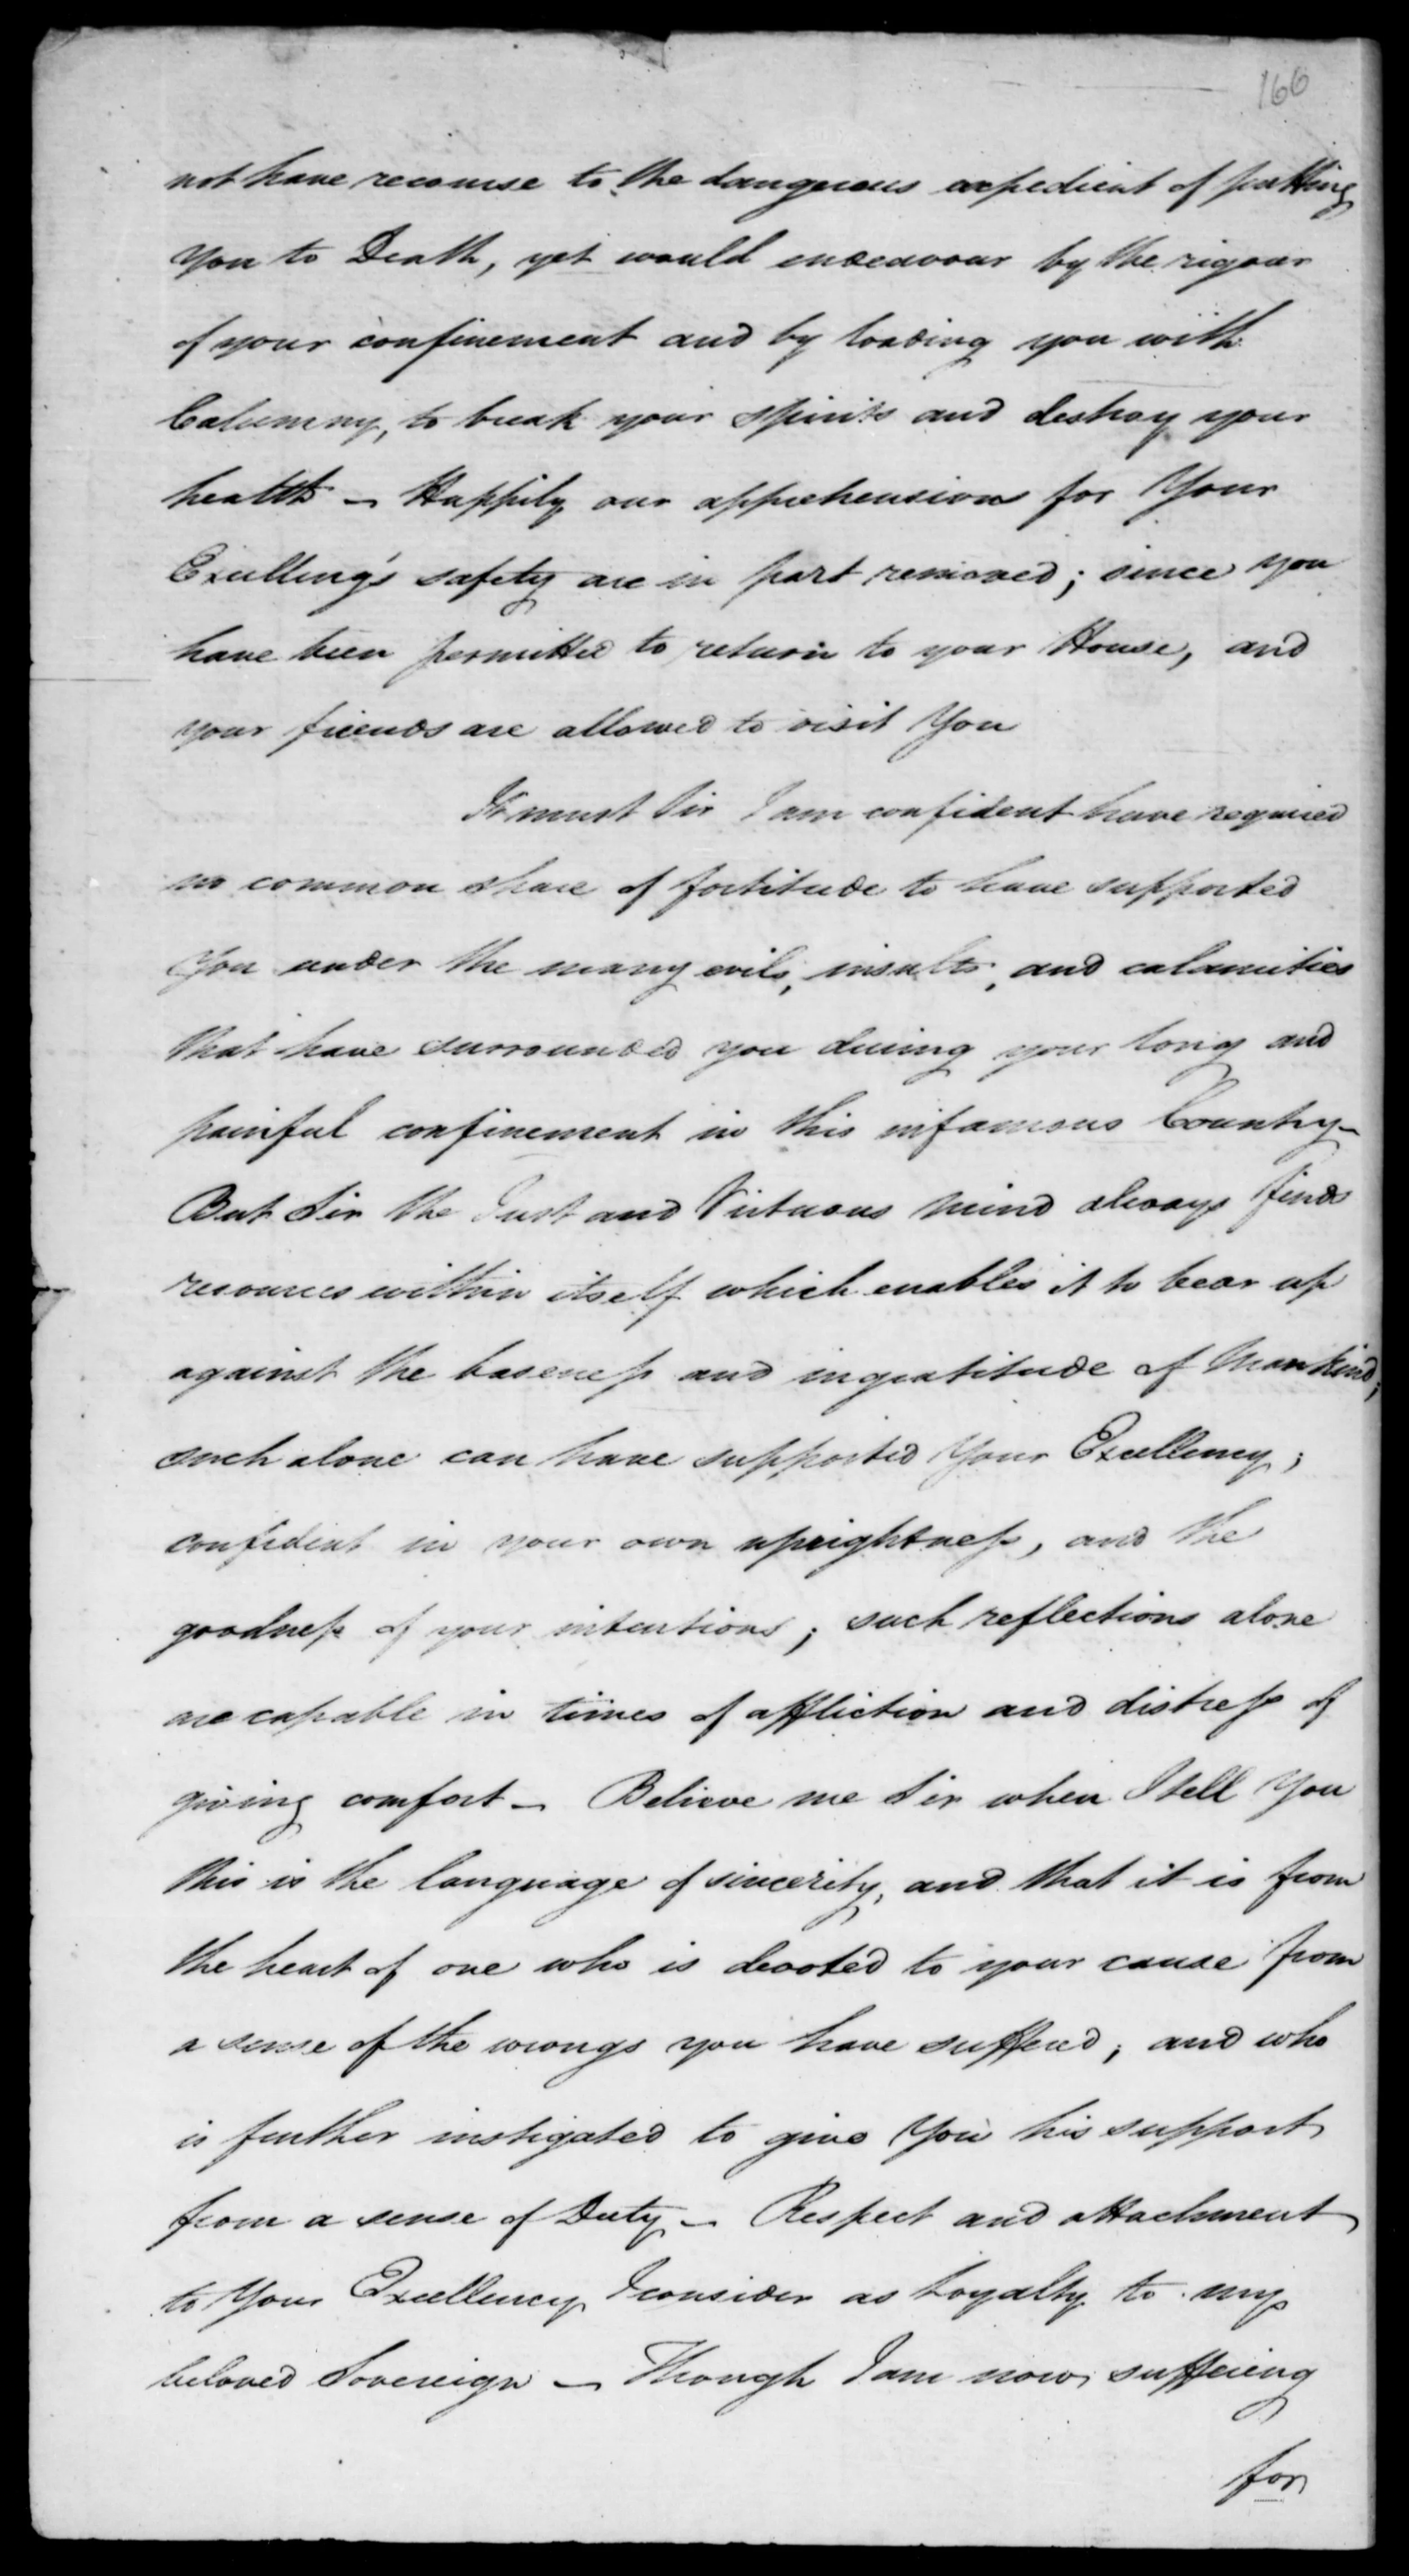 166
not have recourse to the dangerous expedient of putting
You to Death, yet would endeavour by the rigour
of your confinement and by loading you with
Calumny, to break your spirits and destroy your
health – Happily our apprehensions for Your
Excellency's safety are in part removed; since you
have been permitted to return to your House, and
your friends are allowed to visit You
It must Sir I am confident have required
no common share of fortitude to have supported
You under the many evils, insults, and calamities
that have surrounded you during your long and
painful confinement in this infamous Country –
But Sir the Just and Virtuous mind always finds
resources within itself which enables it to bear up
against the baseness and ingratitude of Mankind;
such alone can have supported Your Excellency;
confident in your own uprightness, and the
goodness of your intentions; such reflections alone
are capable in times of affliction and distress of
giving comfort – Believe me Sir when I tell You
this is the language of sincerity, and that it is from
the heart of one who is devoted to your cause from
a sense of the wrongs you have suffered; and who
is further instigated to give You his support
from a sense of Duty – Respect and attachment
to Your Excellency I consider as Loyalty to my
beloved Sovereign – Though I am now suffering
for